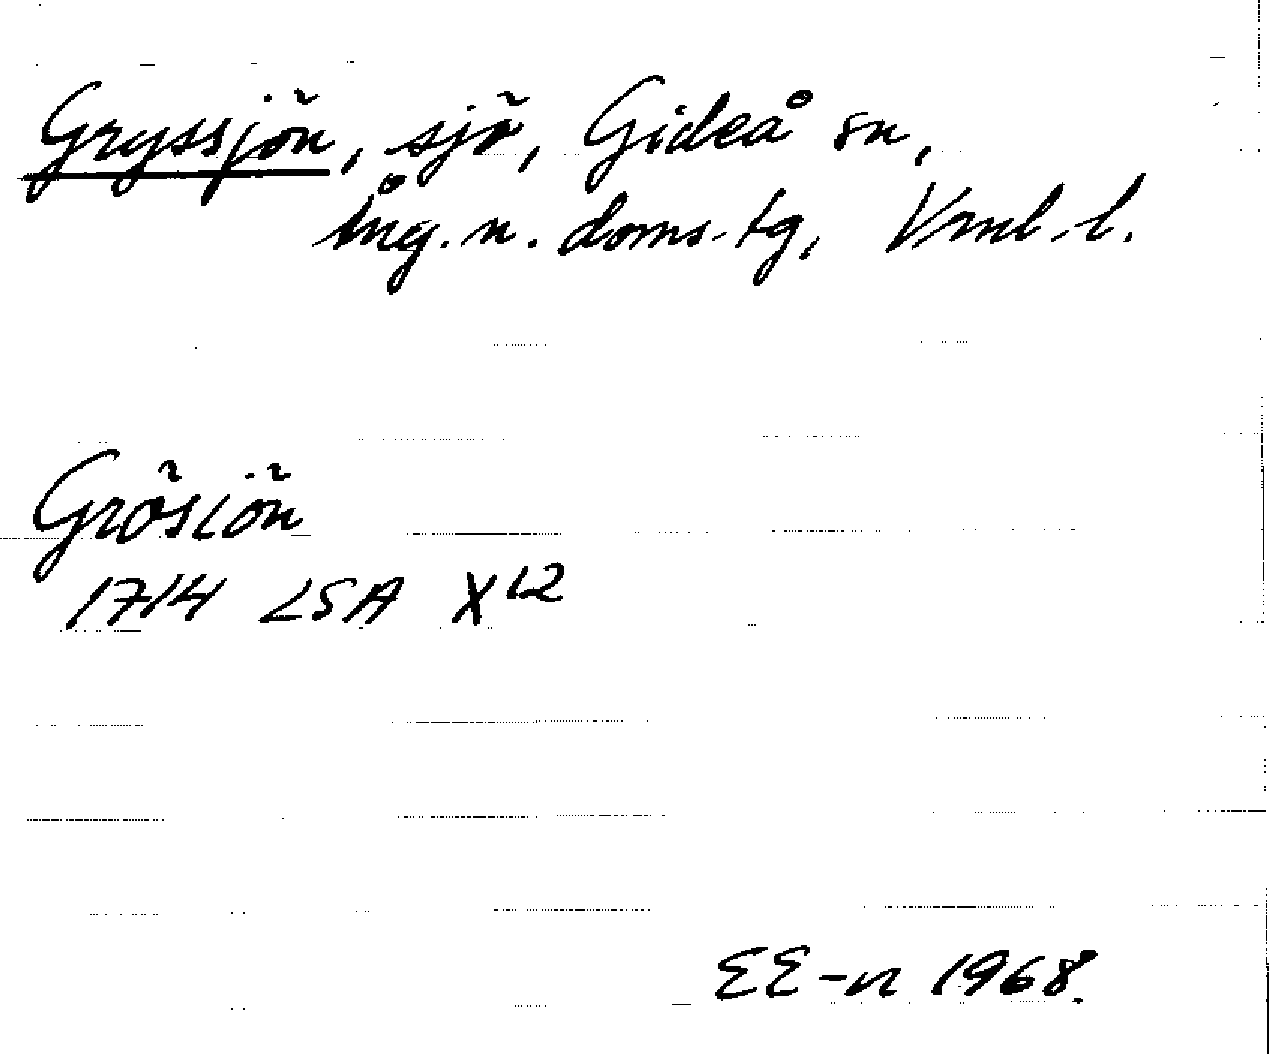 Gryssjön, sjö, Gideå sn,
Ång. n. doms-tg, Vrnl. l.
Grösiön
1714 LSA X12
EE-n 1968.